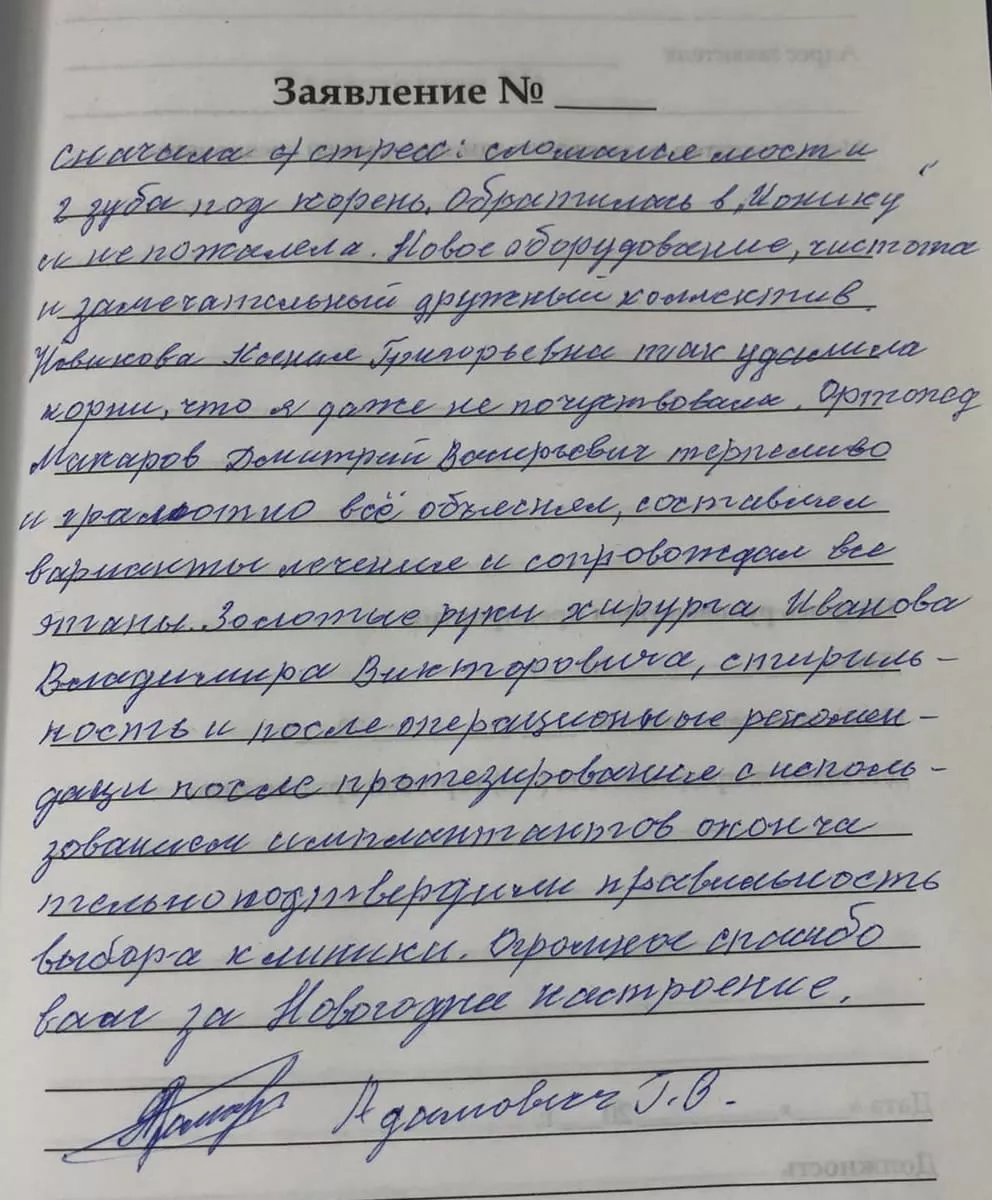 Заявление № ____
сначала стресс: сломался мост и
2 зуба под корень. Обратилась в „Конику“
и не пожалела. Новое оборудование, чистота
и замечательный дружный коллектив.
Новикова Ксения Григорьевна так удалила
корни, что я даже не почуствовала. Ортопед
Макаров Дмитрий Валирьевич терпеливо
и грамотно всё объяснял, составил
варианты лечения и сопровождал все
этапы. Золотые руки хирурга Иванова
Владимира Викторовича, стириль-
ность и послеоперационные рекомен-
даци после протезирования с исполь-
зованием имплантантов оконча
тельно подтвердили правильность
выбора клиники. Огромное спасибо
вам за Новогодне настроение.
Адамович Г.В.
Адрес заявителя
Дата « » 20 г.
Должность